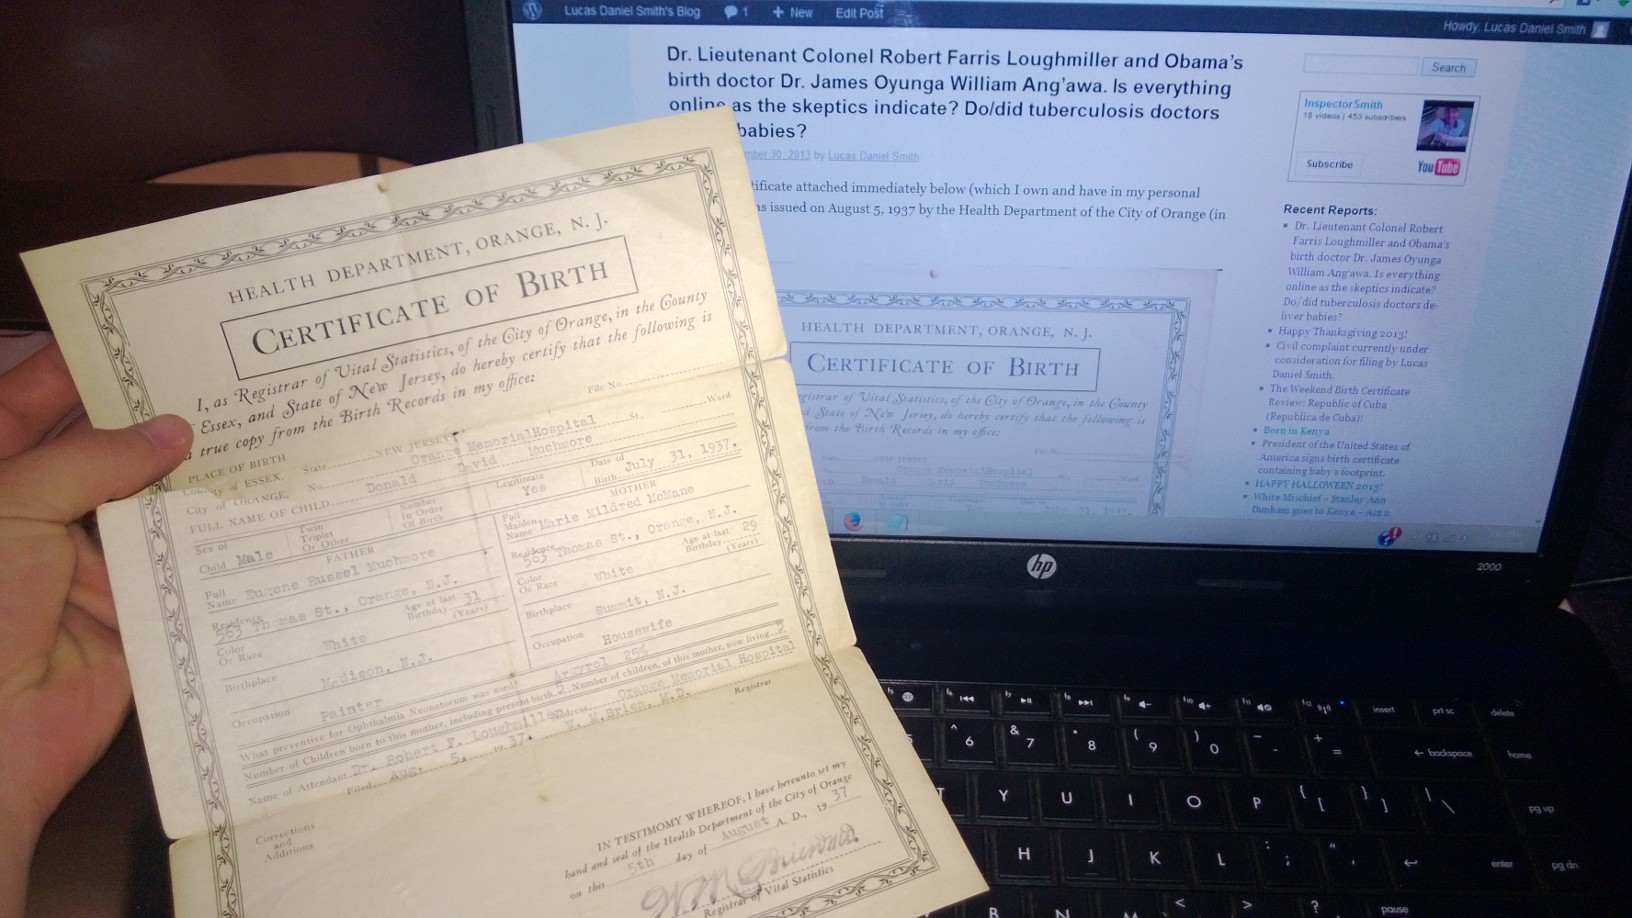 Lucas Daniel Smith's Blog 1 + New Edit Post
Howdy, Lucas Daniel Smith
Dr. Lieutenant Colonel Robert Farris Loughmiller and Obama's
birth doctor Dr. James Oyunga William Ang'awa. Is everything
online as the skeptics indicate? Do/did tuberculosis doctors
babies?
30, 2013 by Lucas Daniel Smith
attached immediately below (which I own and have in my personal
issued on August 5, 1937 by the Health Department of the City of Orange (in
HEALTH DEPARTMENT, ORANGE, N. J.
CERTIFICATE OF BIRTH
of Vital Statistics, of the City of Orange, in the County
State of New Jersey, do hereby certify that the following is
from the Birth Records in my office:
Search
InspectorSmith
18 videos | 453 subscribers
Subscribe
YouTube
Recent Reports:
Dr. Lieutenant Colonel Robert
Farris Loughmiller and Obama's
birth doctor Dr. James Oyunga
William Ang'awa. Is everything
online as the skeptics indicate?
Do/did tuberculosis doctors de-
liver babies?
Happy Thanksgiving 2013!
Civil complaint currently under
consideration for filing by Lucas
Daniel Smith.
The Weekend Birth Certificate
Review: Republic of Cuba
(Republica de Cuba)!
Born in Kenya
President of the United States of
America signs birth certificate
containing baby's footprint.
HAPPY HALLOWEEN 2013!
White Mischief – Stanley Ann
Dunham goes to Kenya – Act 2
HEALTH DEPARTMENT, ORANGE, N. J.
CERTIFICATE OF BIRTH
I, as Registrar of Vital Statistics, of the City of Orange, in the County
Essex, and State of New Jersey, do hereby certify that the following is
a true copy from the Birth Records in my office:
File No.
PLACE OF BIRTH
County of ESSEX. State NEW JERSEY
City of ORANGE. No. Orange Memorial Hospital St., Ward
FULL NAME OF CHILD Donald David Muchmore
Sex of Child Male
Twin Triplet Or Other
Number In Order Of Birth
Legitimate Yes
Date of Birth July 31, 1937.
FATHER
Full Name Eugene Russel Muchmore
Residence 563 Thomas St., Orange, N.J.
Color Or Race White
Age at last Birthday 31 (Years)
Birthplace Madison, N.J.
Occupation Painter
MOTHER
Full Maiden Name Marie Mildred McMane
Residence 563 Thomas St., Orange, N.J.
Color Or Race White
Age at last Birthday 29 (Years)
Birthplace Summit, N.J.
Occupation Housewife
What preventive for Ophthalmia Neonatorum was used? Argyrol 25%
Number of Children born to this mother, including present birth Number of children, of this mother, now living
Name of Attendant Dr. Robert F. Loughmiller Address Orange Memorial Hospital
Filed Aug. 5, 1937. M.D. Registrar
Corrections
and
Additions
IN TESTIMOMY WHEREOF, I have hereunto set my
hand and seal of the Health Department of the City of Orange
on this 5th day of August A. D., 1937
Registrar of Vital Statistics
hp
2000
insert
prt sc
delete
^ 6
& 7
* 8
( 9
) 0
- -
+ =
backspace
home
Y U I O P { [ } ] | \
pg up
H J K L : ; " '
enter
pg dn
B N M < > ?
pause